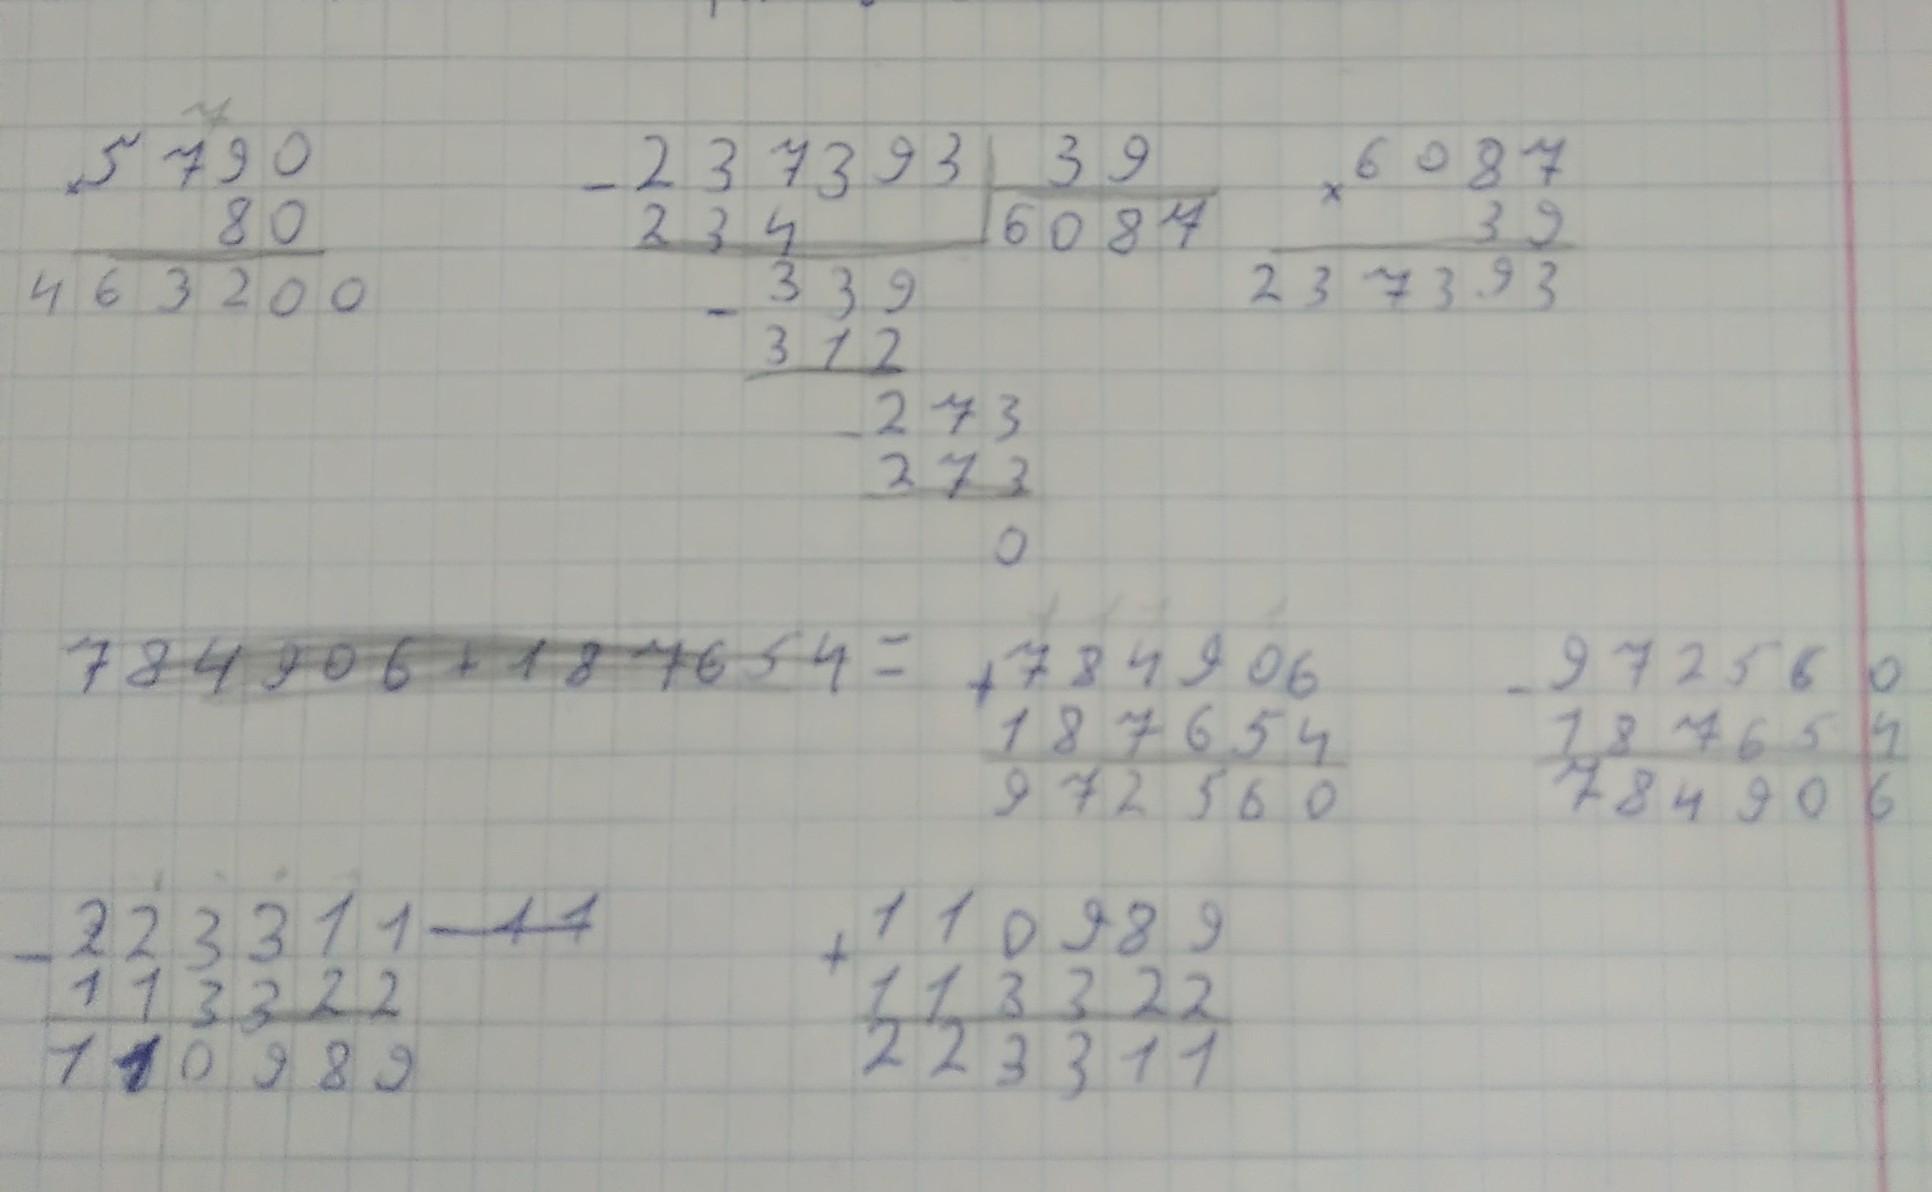 5790
× 80
463200
- 237393 | 39
234 | 6087
- 339
312
- 273
273
0
× 6087
39
237393
784906+187654=
+ 784906
187654
972560
- 972560
187654
784906
- 223311 - 11
113322
110989
+ 110989
113322
223311